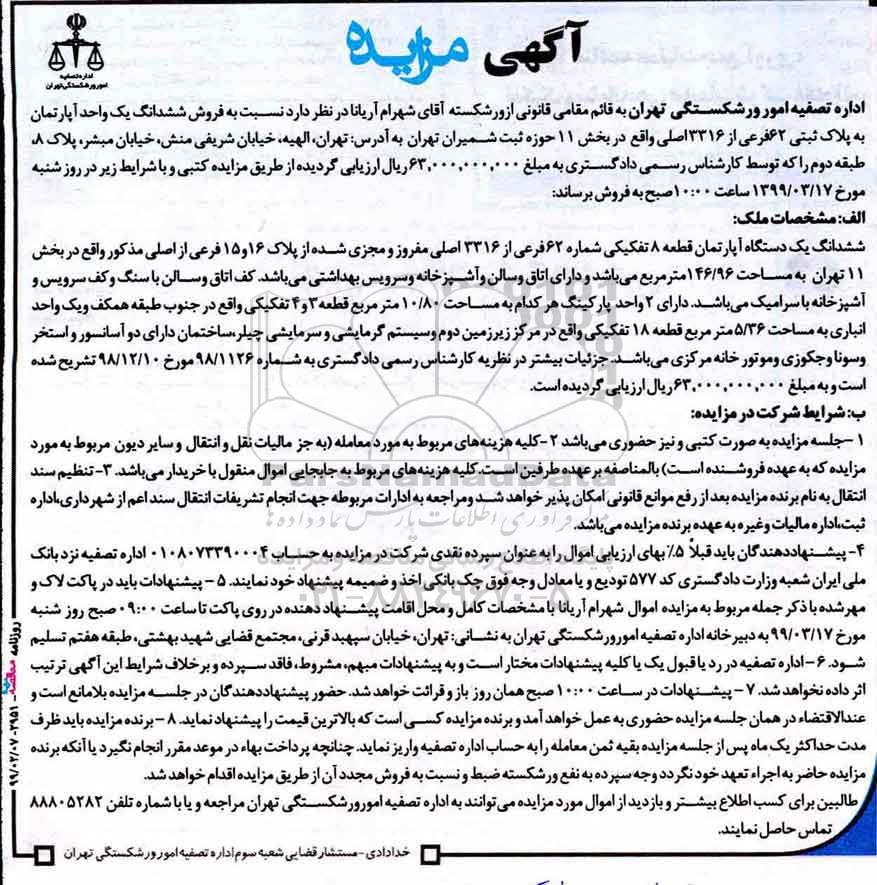 آگهی مزایده
اداره تصفیه
امور ورشکستگی تهران
اداره تصفیه امور ورشکستگی تهران به قائم مقامی قانونی از ورشکسته آقای شهرام آریانا در نظر دارد نسبت به فروش ششدانگ یک واحد آپارتمان
به پلاک ثبتی ۶۲فرعی از ۳۳۱۶اصلی واقع در بخش ۱۱ حوزه ثبت شمیران تهران به آدرس: تهران، الهیه، خیابان شریفی منش، خیابان مبشر، پلاک ۸،
طبقه دوم را که توسط کارشناس رسمی دادگستری به مبلغ ۶۳,۰۰۰,۰۰۰,۰۰۰ریال ارزیابی گردیده از طریق مزایده کتبی و با شرایط زیر در روز شنبه
مورخ ۱۳۹۹/۰۳/۱۷ ساعت ۱۰:۰۰صبح به فروش برساند:
الف: مشخصات ملک:
ششدانگ یک دستگاه آپارتمان قطعه ۸ تفکیکی شماره ۶۲فرعی از ۳۳۱۶ اصلی مفروز و مجزی شده از پلاک ۱۶و۱۵ فرعی از اصلی مذکور واقع در بخش
۱۱ تهران به مساحت ۱۴۶/۹۶مترمربع می‌باشد و دارای اتاق وسالن وآشپزخانه وسرویس بهداشتی می‌باشد. کف اتاق وسالن با سنگ و کف سرویس و
آشپزخانه با سرامیک می‌باشد. دارای ۲ واحد پارکینگ هر کدام به مساحت ۱۰/۸۰ متر مربع قطعه ۳و۴ تفکیکی واقع در جنوب طبقه همکف ویک واحد
انباری به مساحت ۵/۳۶ متر مربع قطعه ۱۸ تفکیکی واقع در مرکز زیرزمین دوم وسیستم گرمایشی و سرمایشی چیلر، ساختمان دارای دو آسانسور و استخر
وسونا وجکوزی وموتور خانه مرکزی می‌باشد. جزئیات بیشتر در نظریه کارشناس رسمی دادگستری به شماره ۹۸/۱۱۲۶ مورخ ۹۸/۱۲/۱۰ تشریح شده
است و به مبلغ ۶۳,۰۰۰,۰۰۰,۰۰۰ریال ارزیابی گردیده است.
ب: شرایط شرکت در مزایده:
۱ –جلسه مزایده به صورت کتبی و نیز حضوری می‌باشد ۲-کلیه هزینه‌های مربوط به مورد معامله (به جز مالیات نقل و انتقال و سایر دیون مربوط به مورد
مزایده که به عهده فروشنده است) بالمناصفه بر عهده طرفین است. کلیه هزینه‌های مربوط به جابجایی اموال منقول با خریدار می‌باشد. ۳- تنظیم سند
انتقال به نام برنده مزایده بعد از رفع موانع قانونی امکان پذیر خواهد شد ومراجعه به ادارات مربوطه جهت انجام تشریفات انتقال سند اعم از شهرداری، اداره
ثبت، اداره مالیات وغیره به عهده برنده مزایده می‌باشد.
۴- پیشنهاددهندگان باید قبلاً ۵٪ بهای ارزیابی اموال را به عنوان سپرده نقدی شرکت در مزایده به حساب ۰۱۰۸۰۷۳۳۹۰۰۰۴ اداره تصفیه نزد بانک
ملی ایران شعبه وزارت دادگستری کد ۵۷۷ تودیع و یا معادل وجه فوق چک بانکی اخذ و ضمیمه پیشنهاد خود نمایند. ۵ – پیشنهادات باید در پاکت لاک و
مهر شده با ذکر جمله مربوط به مزایده اموال شهرام آریانا با مشخصات کامل و محل اقامت پیشنهاد دهنده در روی پاکت تا ساعت ۰۹:۰۰ صبح روز شنبه
مورخ ۹۹/۰۳/۱۷ به دبیرخانه اداره تصفیه امور ورشکستگی تهران به نشانی: تهران، خیابان سپهبد قرنی، مجتمع قضایی شهید بهشتی، طبقه هفتم تسلیم
شود. ۶ - اداره تصفیه در رد یا قبول یک یا کلیه پیشنهادات مختار است و به پیشنهادات مبهم، مشروط، فاقد سپرده و بر خلاف شرایط این آگهی ترتیب
اثر داده نخواهد شد. ۷ – پیشنهادات در ساعت ۱۰:۰۰ صبح همان روز باز و قرائت خواهد شد. حضور پیشنهاددهندگان در جلسه مزایده بلامانع است و
عندالاقتضاء در همان جلسه مزایده حضوری به عمل خواهد آمد و برنده مزایده کسی است که بالاترین قیمت را پیشنهاد نماید. ۸ – برنده مزایده باید ظرف
مدت حداکثر یک ماه پس از جلسه مزایده بقیه ثمن معامله را به حساب اداره تصفیه واریز نماید. چنانچه پرداخت بهاء در موعد مقرر انجام نگیرد یا آنکه برنده
مزایده حاضر به اجراء تعهد خود نگردد وجه سپرده به نفع ورشکسته ضبط و نسبت به فروش مجدد آن از طریق مزایده اقدام خواهد شد.
طالبین برای کسب اطلاع بیشتر و بازدید از اموال مورد مزایده می‌توانند به اداره تصفیه امور ورشکستگی تهران مراجعه و یا با شماره تلفن ۸۸۸۰۵۲۸۲
تماس حاصل نمایند.
خدادادی - مستشار قضایی شعبه سوم اداره تصفیه امور ورشکستگی تهران
روزنامه مناقصه مزایده ۲۹۵۱ - ۹۹/۰۲/۰۷
ParsNamadData
۰۲۱-۸۸۳۴۹۶۷۰-۵